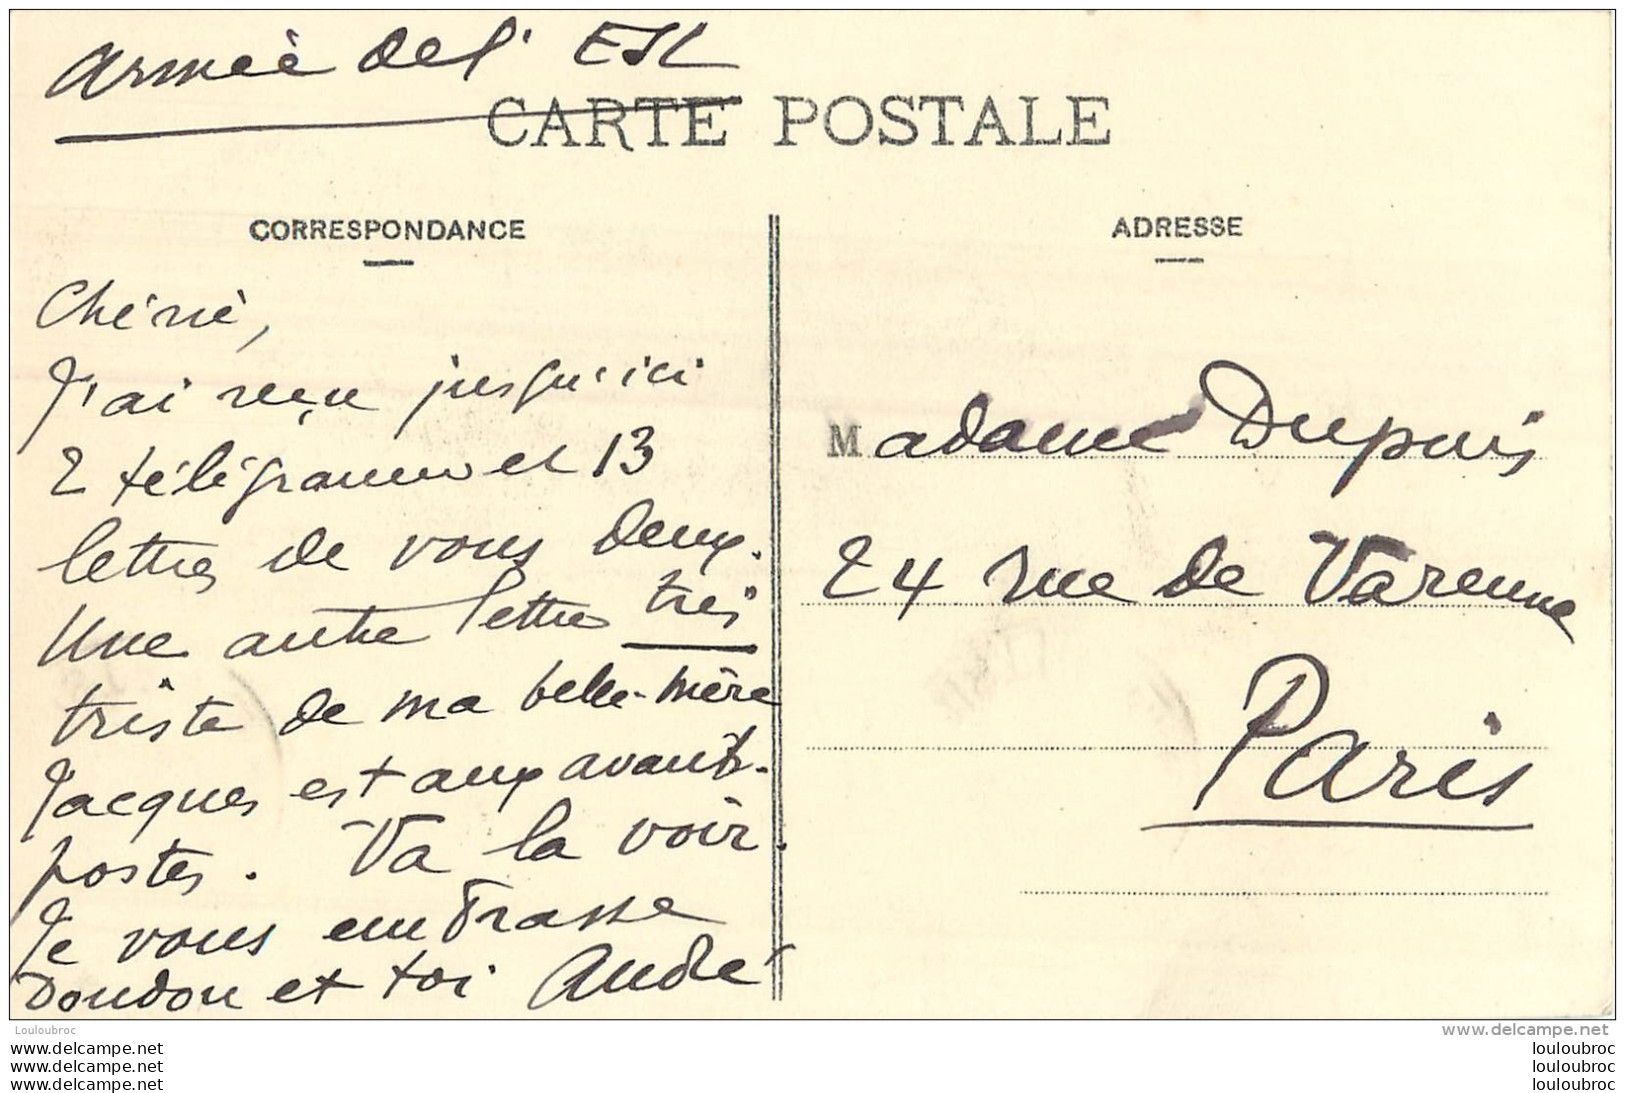 Armée de l'Est
CARTE POSTALE
CORRESPONDANCE
Chérie,
J'ai reçu jusqu'ici
2 télégrammes et 13
lettres de vous deux.
Une autre lettre très
triste de ma belle-mère
Jacques est aux avant-
postes. Va la voir.
Je vous embrasse
Doudou et toi André
ADRESSE
Madame Dupuis
24 rue de Varenne
Paris
Louloubroc
www.delcampe.net
www.delcampe.net
www.delcampe.net
www.delcampe.net
louloubroc
louloubroc
louloubroc